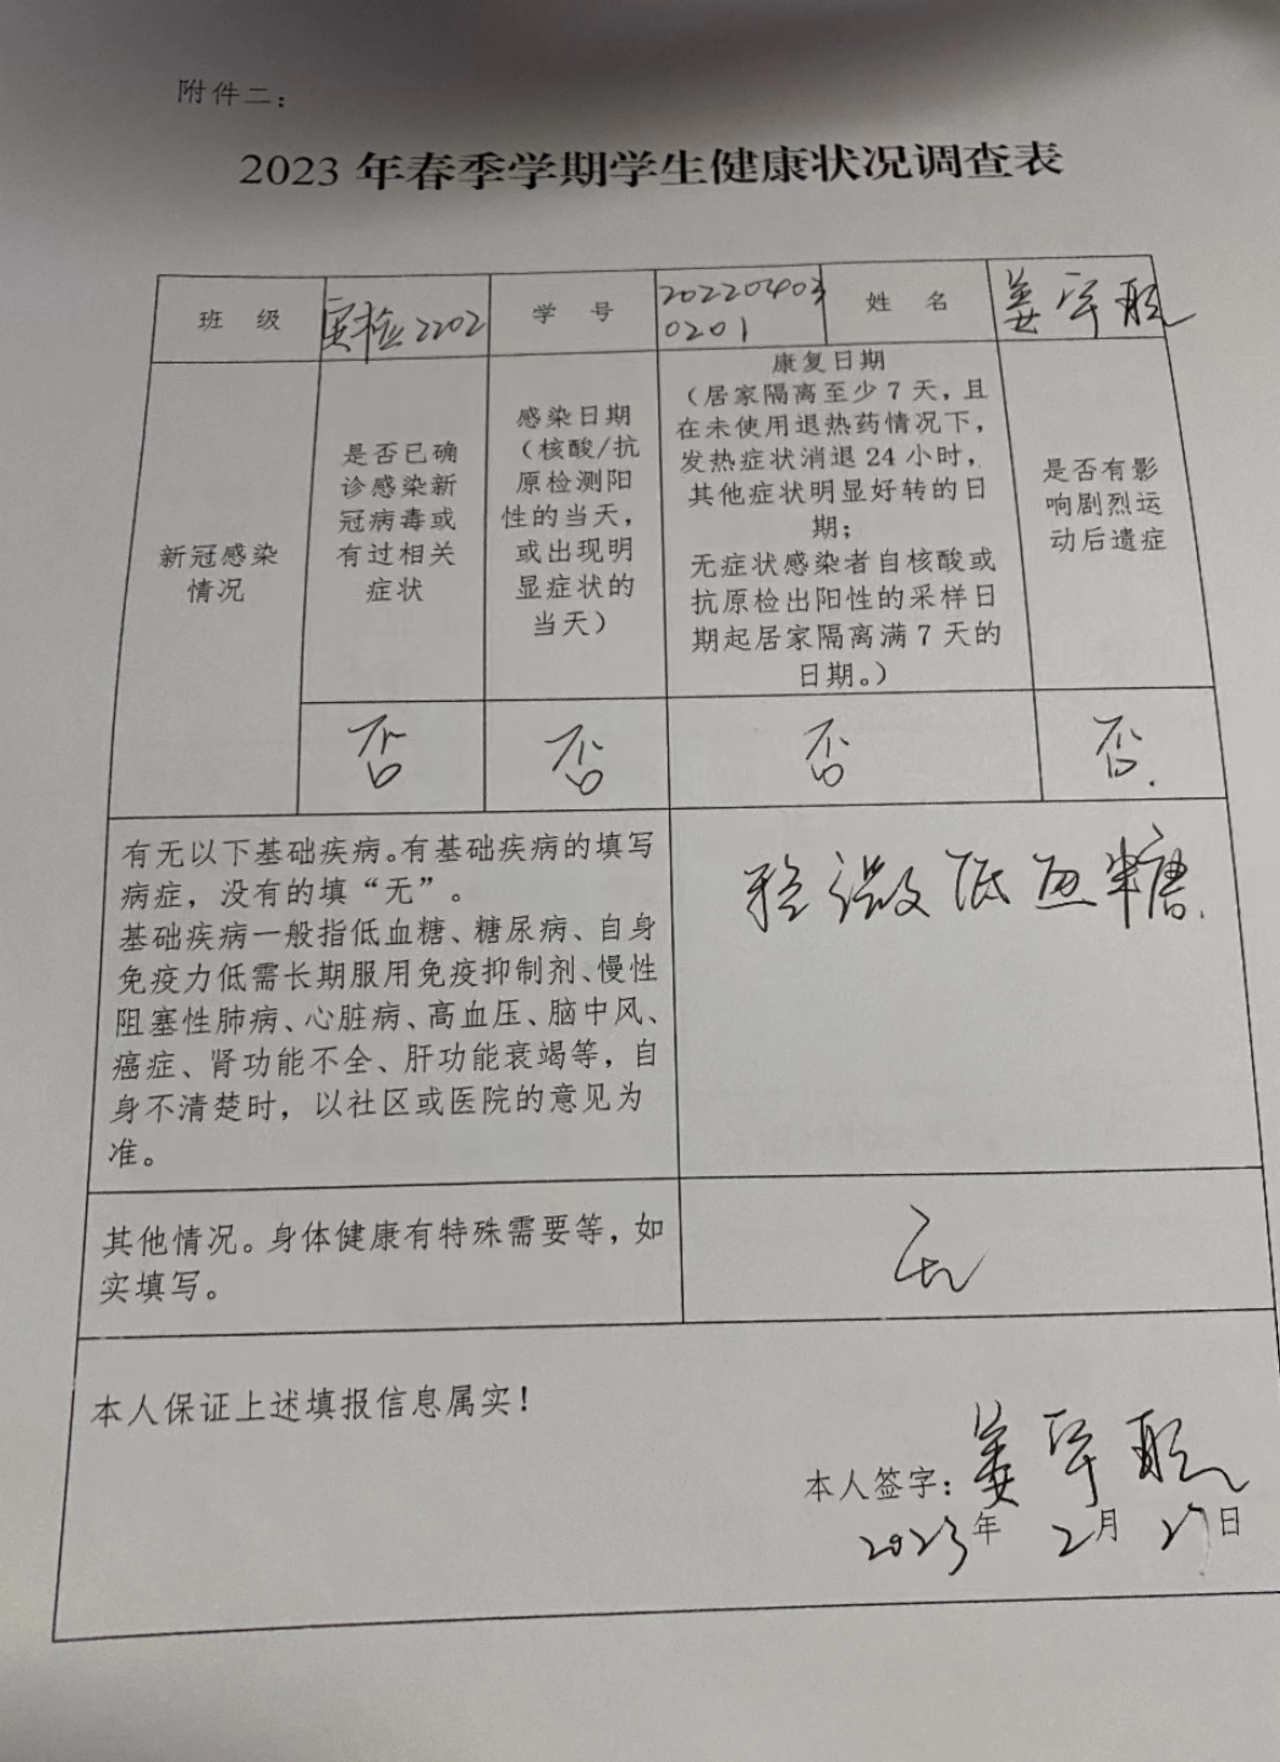 附件二：
2023年春季学期学生健康状况调查表
班 级
实检2202
学 号
202204030201
姓 名
姜宇
新冠感染
情况
是否已确
诊感染新
冠病毒或
有过相关
症状
感染日期
（核酸/抗
原检测阳
性的当天，
或出现明
显症状的
当天）
康复日期
（居家隔离至少7天，且
在未使用退热药情况下，
发热症状消退24小时，
其他症状明显好转的日
期；
无症状感染者自核酸或
抗原检出阳性的采样日
期起居家隔离满7天的
日期。）
是否有影
响剧烈运
动后遗症
否
否
否
否.
有无以下基础疾病。有基础疾病的填写
病症，没有的填“无”。
基础疾病一般指低血糖、糖尿病、自身
免疫力低需长期服用免疫抑制剂、慢性
阻塞性肺病、心脏病、高血压、脑中风、
癌症、肾功能不全、肝功能衰竭等，自
身不清楚时，以社区或医院的意见为
准。
稍微低血糖.
其他情况。身体健康有特殊需要等，如
实填写。
无
本人保证上述填报信息属实！
本人签字：姜宇
2023年 2月 27日